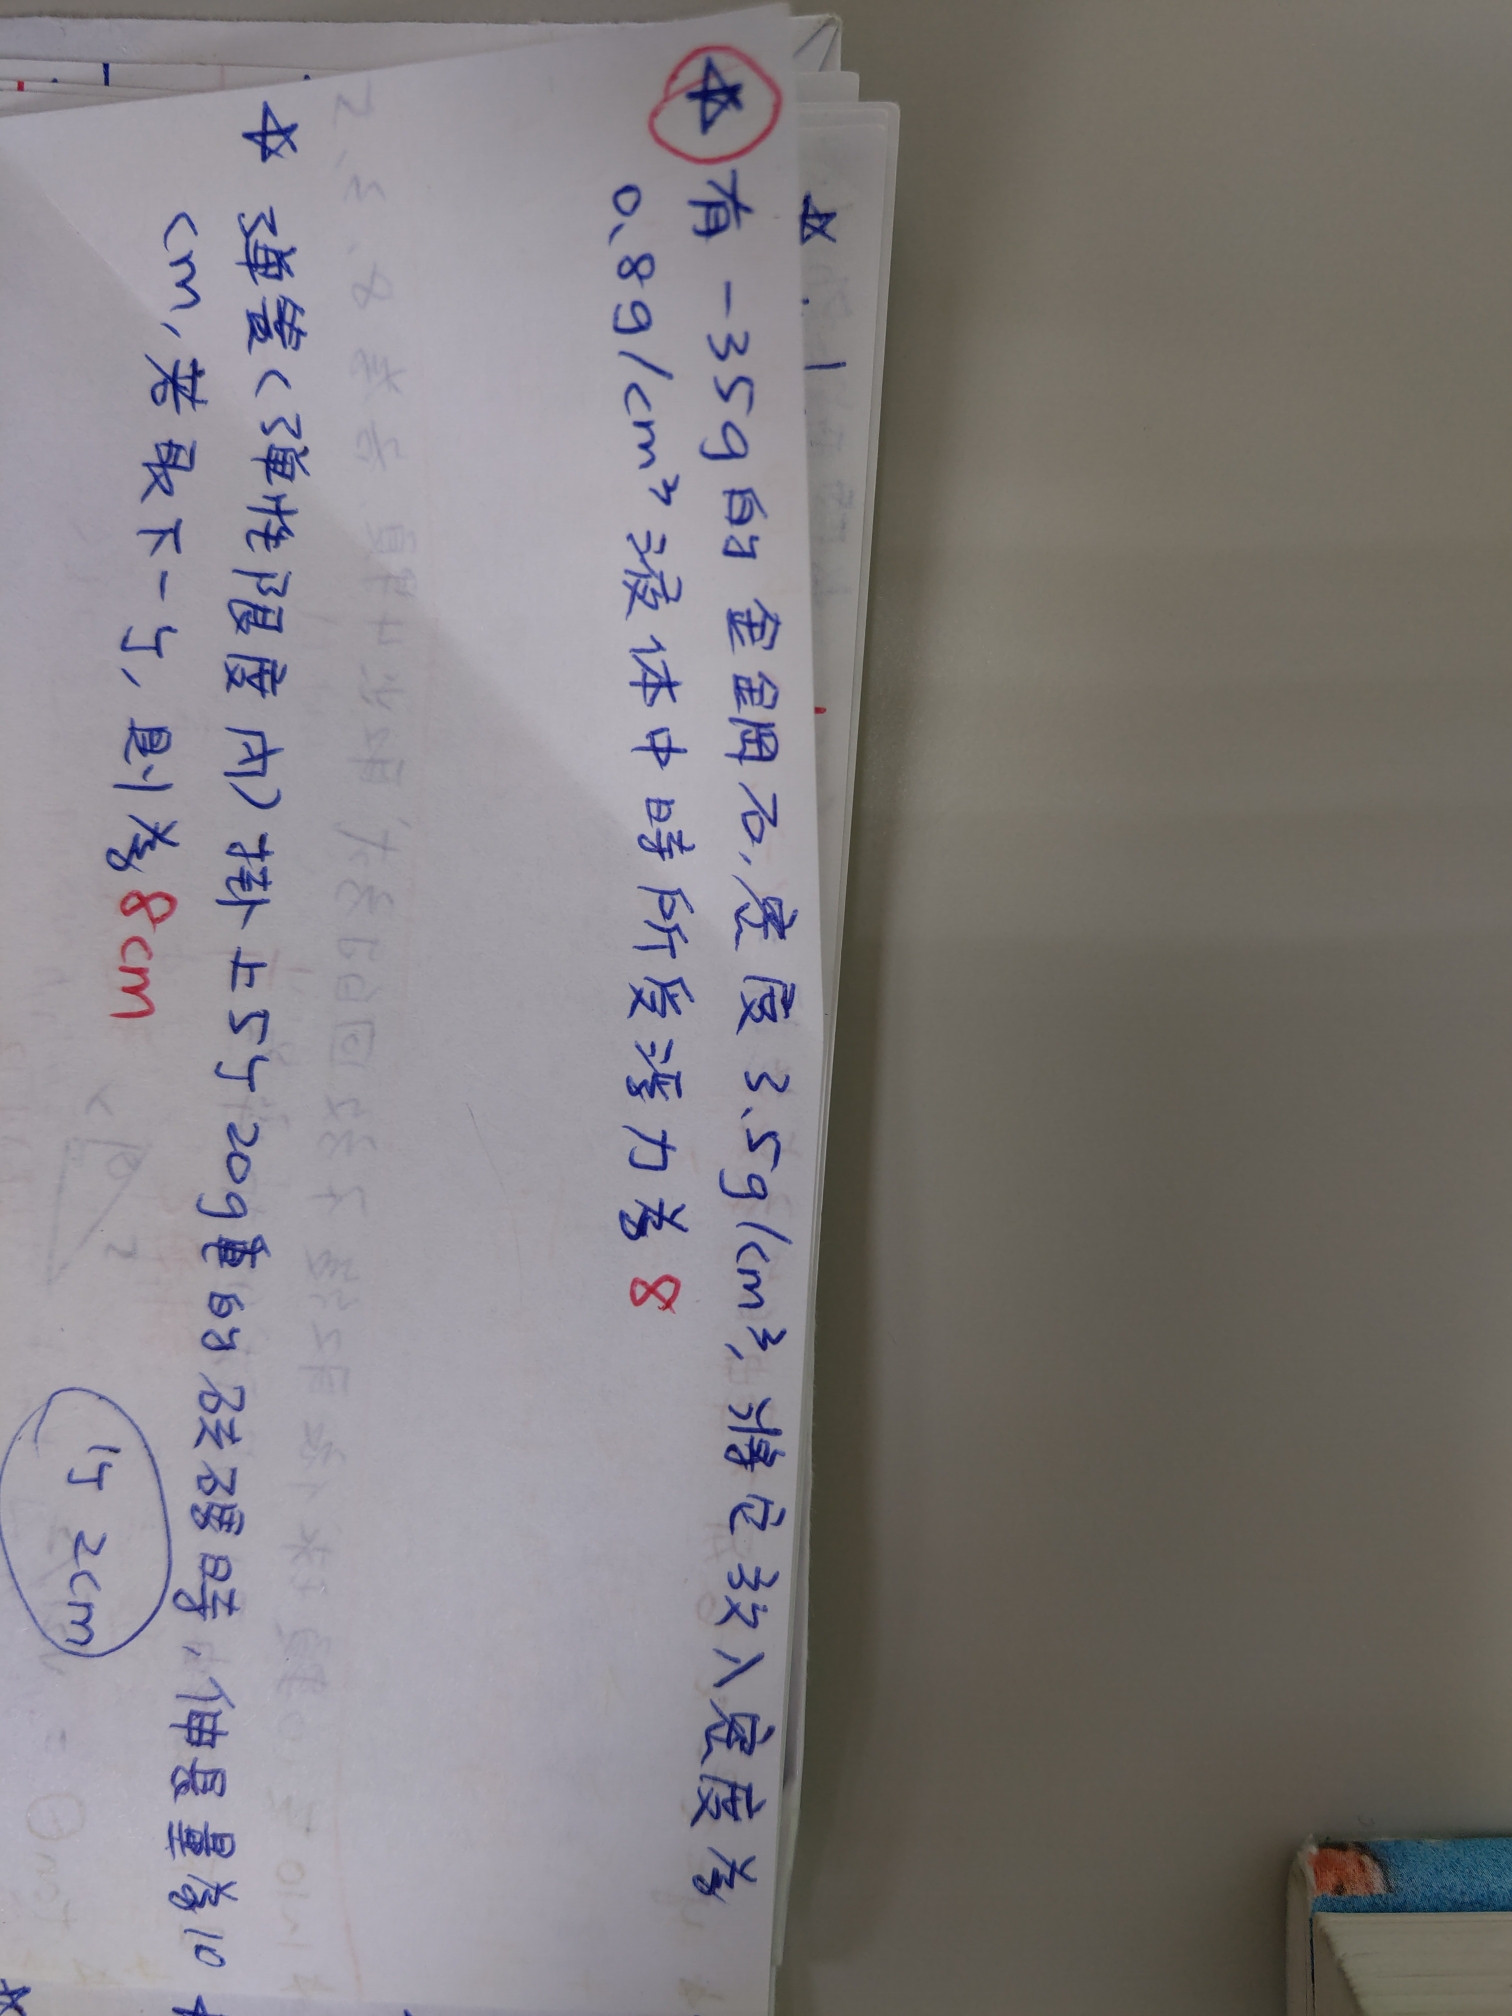 有一35g的金鋼石,密度3.5g/cm³,將它放入密度為
0.8g/cm³液體中時所受浮力為8
彈簧(彈性限度內)掛上5个20g重的砝碼時,伸長量為10
cm,若取下一个,則為8cm
1个 2cm